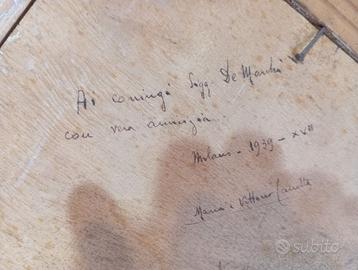 Ai coniugi Sigg. De Marchi
con vera amicizia.
Milano - 1939 - XVII
Maria e Vittorio
subito